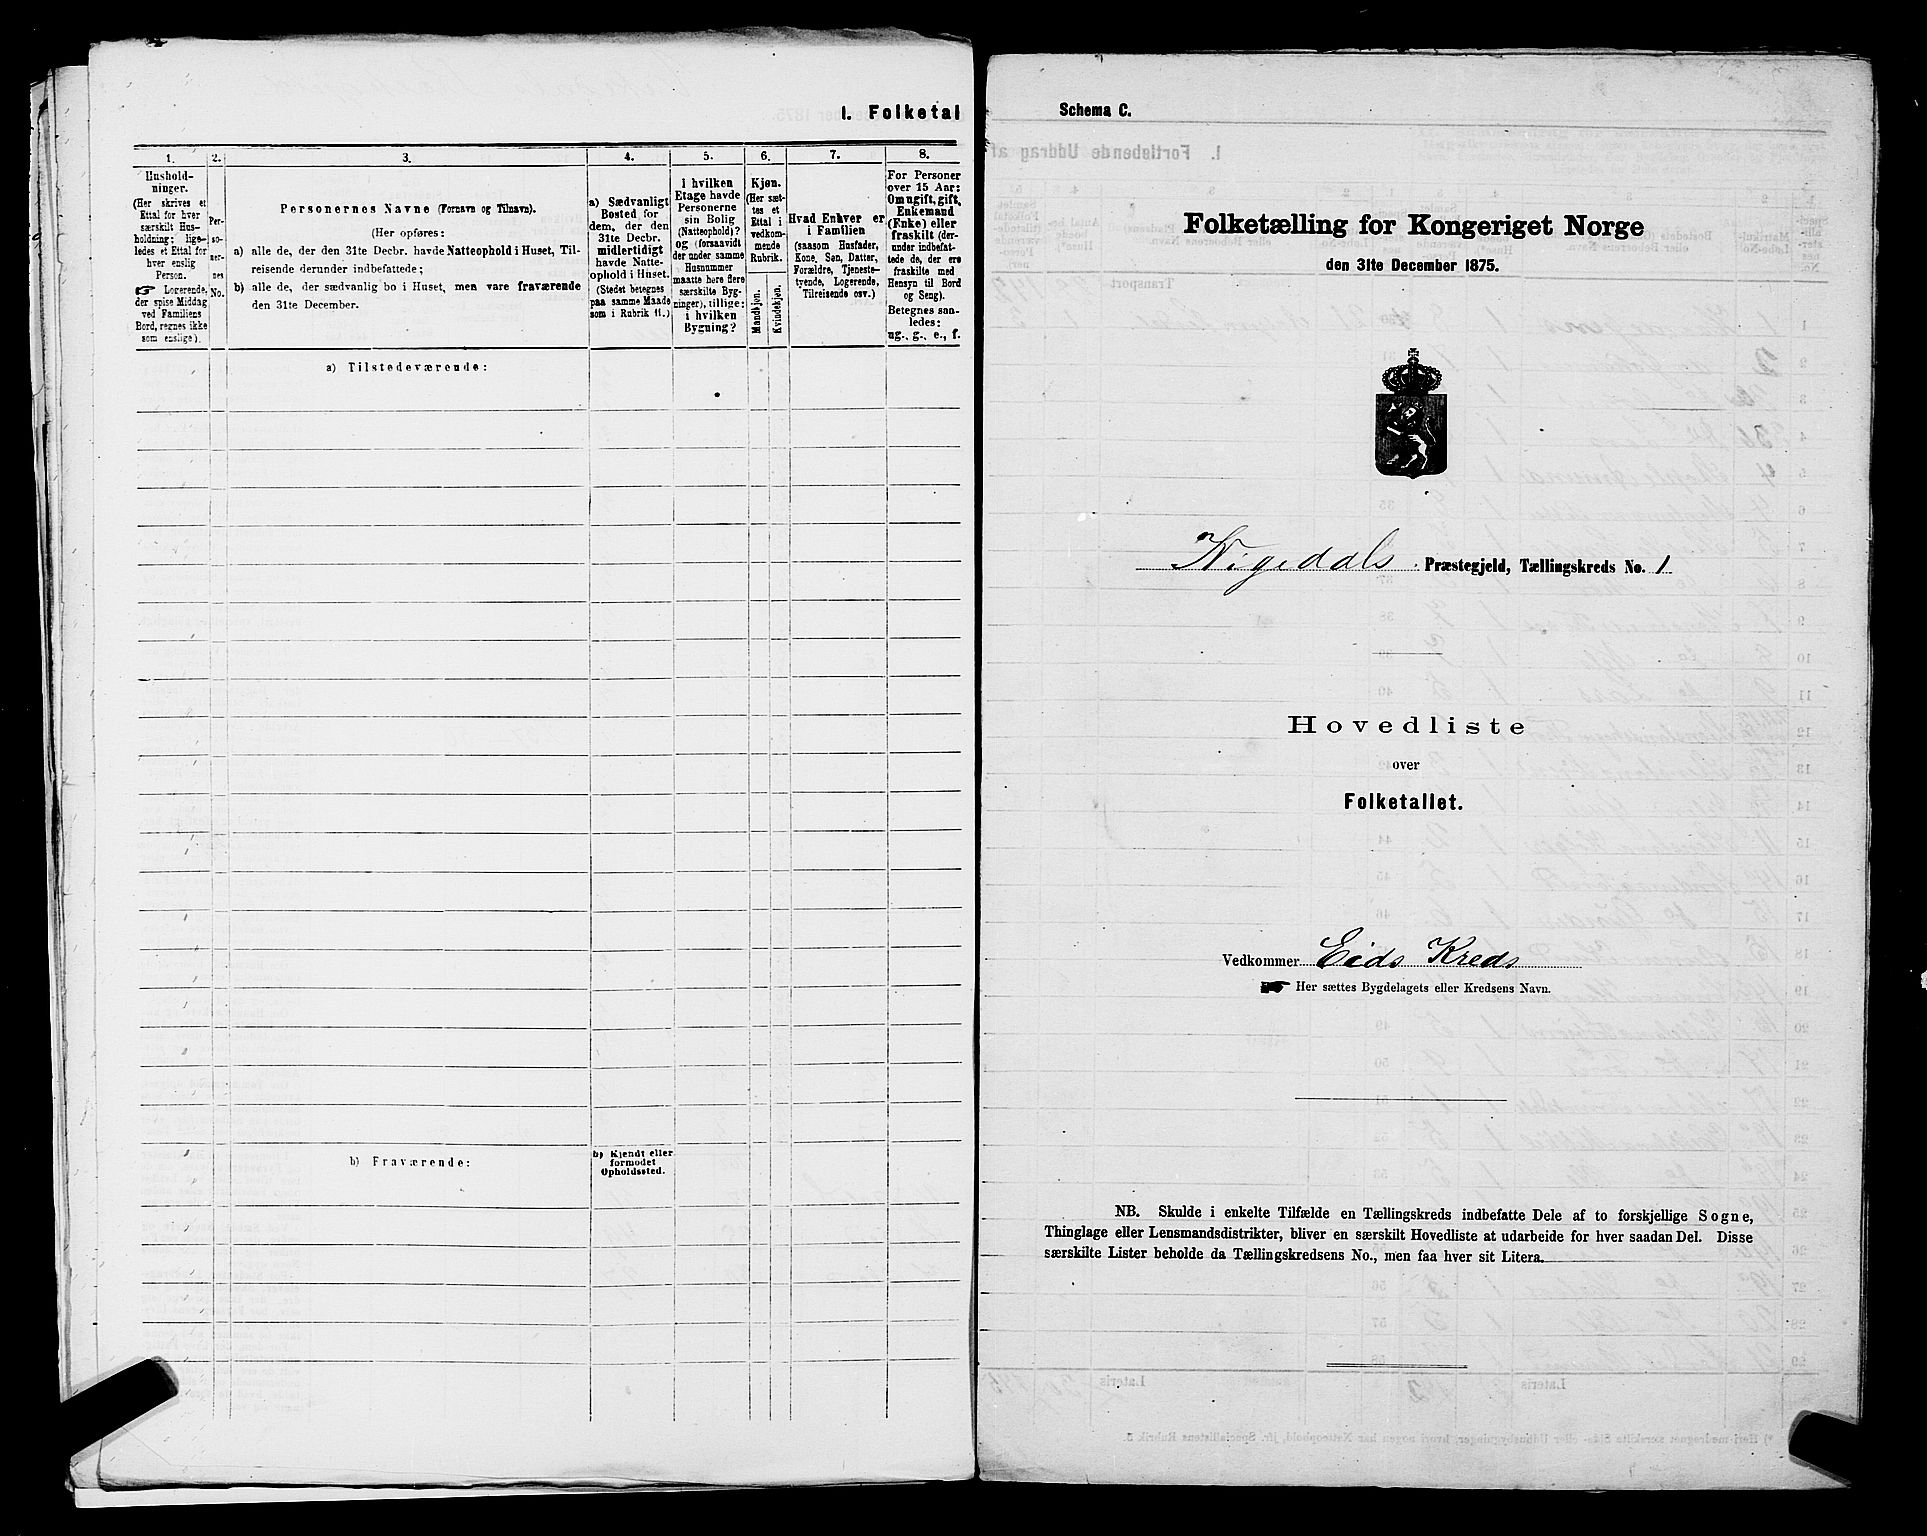 1. Folketal
1. 2. 3. 4. 5. 6. 7. 8.
Hushold-
ninger.
(Her skrives et
Ettal for hver
særskilt Hus-
holdning; lige-
ledes et Ettal for
hver enslig
Person.
Logerende,
der spise Middag
ved Familiens
Bord, regnes ikke
som enslige).
Per-
so-
ner-
nes
No.
Personernes Navne (Fornavn og Tilnavn).
(Her opføres:
a) alle de, der den 31te Decbr. havde Natteophold i Huset, Til-
reisende derunder indbefattede;
b) alle de, der sædvanlig bo i Huset, men vare fraværende
den 31te December.
a) Sædvanligt
Bosted for
dem, der den
31te Decbr.
midlertidigt
havde Natte-
ophold i Huset.
(Stedet betegnes
paa samme Maade
som i Rubrik 11.)
I hvilken
Etage havde
Personerne
sin Bolig
(Natteophold)?
og (forsaavidt
der under samme
Husnummer
maatte høre flere
særskilte Byg-
ninger), tillige:
i hvilken
Bygning?
Kjøn.
(Her sæt-
tes et
Ettal i
vedkom-
mende
Rubrik.
Mandkjøn.
Kvindekjøn.
Hvad Enhver er
i Familien
(saasom Husfader,
Kone, Søn, Datter,
Forældre, Tjeneste-
tyende, Logerende,
Tilreisende osv.)
For Personer
over 15 Aar:
Om ugift, gift,
Enkemand
(Enke) eller
fraskilt (der-
under indbefat-
tede de, der ere
fraskilte med
Hensyn til Bord
og Seng).
Betegnes saa-
ledes:
ug., g., e., f.
a) Tilstedeværende:
b) Fraværende:
b) Kjendt eller
formodet
Opholdssted.
Schema C.
Folketælling for Kongeriget Norge
den 31te December 1875.
Præstegjeld, Tællingskreds No. 1
Hovedliste
over
Folketallet.
Vedkommer Eids Kreds
Her sættes Bygdelagets eller Kredsens Navn.
NB. Skulde i enkelte Tilfælde en Tællingskreds indbefatte Dele af to forskjellige Sogne,
Thinglage eller Lensmandsdistrikter, bliver en særskilt Hovedliste at udarbeide for hver saadan Del. Disse
særskilte Lister beholde da Tællingskredsens No., men faa hver sit Litera.